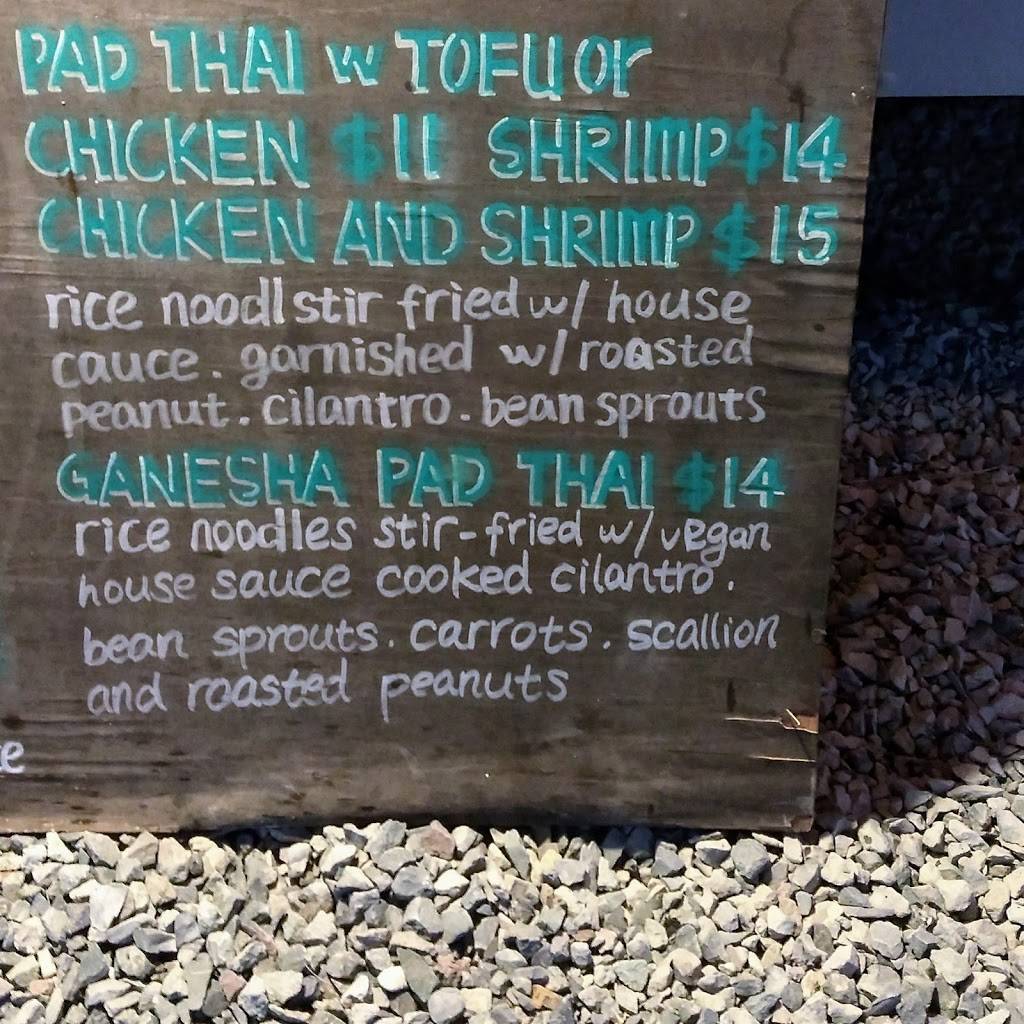 PAD THAI w TOFU or
CHICKEN $11 SHRIMP $14
CHICKEN AND SHRIMP $15
rice noodl stir fried w/ house
cauce. garnished w/ roasted
peanut. cilantro. bean sprouts
GANESHA PAD THAI $14
rice noodles stir-fried w/ vegan
house sauce cooked cilantro.
bean sprouts. carrots. scallion
and roasted peanuts